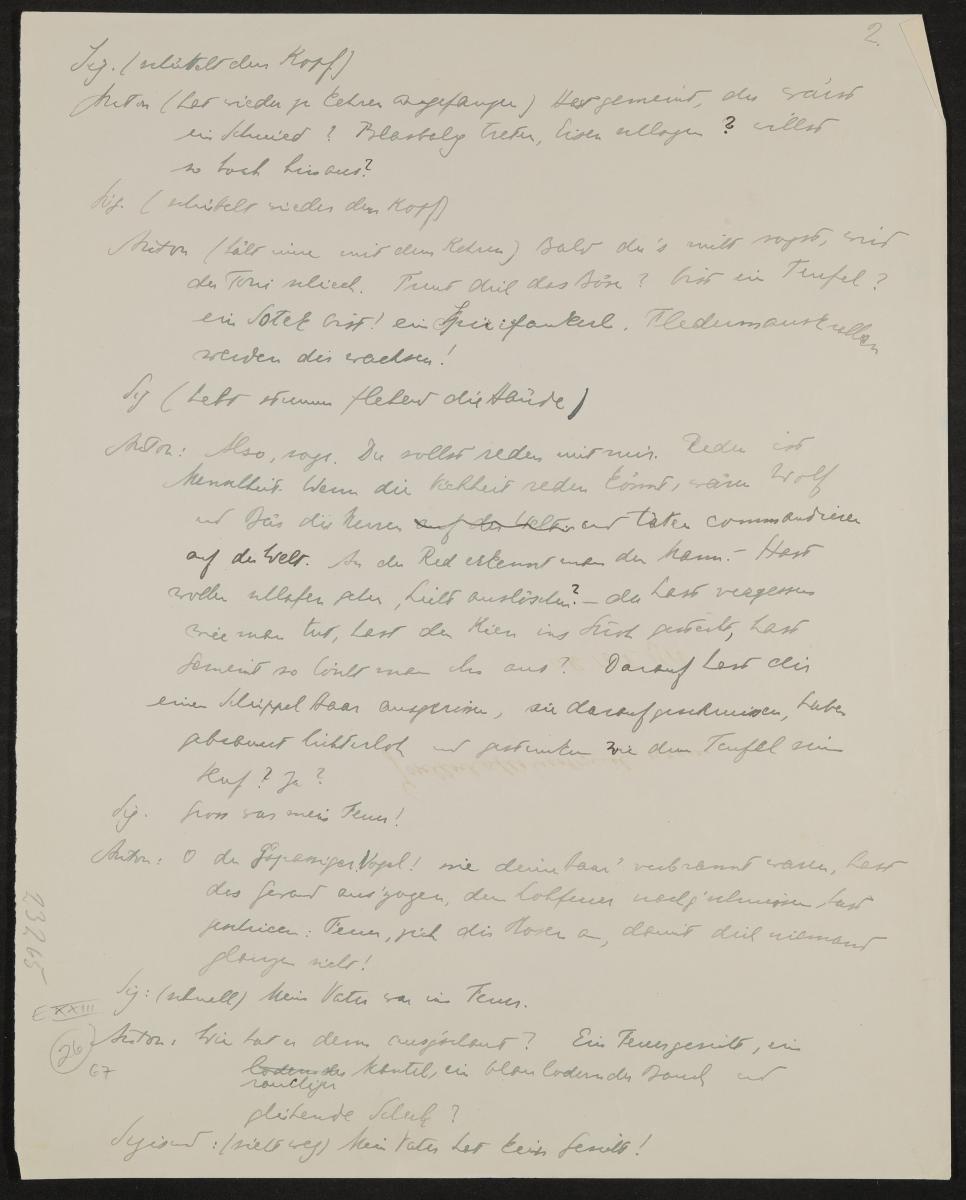 2.
Sig. (schüttelt den Kopf)
Anton (hat wieder zu kehren angefangen) Hast gemeint, du wärst
ein Schmied? Blasbalg treten, Eisen schlagen? willst
so hoch hinaus?
Sig. (schüttelt wieder den Kopf)
Anton (hält inne mit dem Kehren) Bald du's nicht sagst, wird
der Toni schiech. Freut dich das Böse? bist ein Teufel?
ein bist! ein Spirifankerl. Fledermauskrallen
werden dir wachsen!
Sig (hebt stumm flehend die Hände)
Anton: Also, sags. Du sollst reden mit mir. Reden ist
Menschheit. Wenn die Viehheit reden könnt, wären Wolf
und Bär die Herren auf der Welt und täten commandieren
auf der Welt. An der Red erkennt man den Mann. – Hast
wollen schlafen gehn, Licht auslöschen? – du hast vergessen
wie man tut, hast den Kien ins Stroh gesteckt, hast
gemeint so löscht man ihn aus? Darauf hast dir
einen Schippel Haar ausgerissen, sie darauf geschmissen, haben
gebrannt lichterloh und gestunken wie dem Teufel sein
Huf? Ja?
Sig. Gross war mein Feuer!
Anton: O du g'spassiger Vogel! wie deine Haar' verbrannt waren, hast
das Gewand auszogen, dem Lohfeuer nachg'schmissen hast
geschrieen: Feuer, zieh die Hosen an, damit dich niemand
glanzen sieht!
Sig: (schnell) Mein Vater war im Feuer.
Anton: Wie hat er denn ausgschaut? Ein Feuergesicht, ein
lodernder Mantel, ein blau lodernder Bauch und
rauchiger
glühende Schuh?
Sigismund: (sieht weg) Mein Vater hat kein Gesicht!
23265
E XXIII
26
67